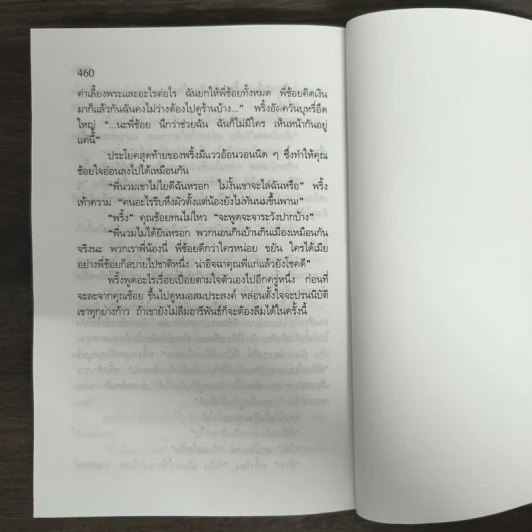 460
ค่าเลี้ยงพระและอะไรต่อไร ฉันยกให้พี่ช้อยทั้งหมด พี่ช้อยคิดเงิน
มาก็แล้วกันฉันคงไม่ว่างต้องไปดูร้านบ้าง...” พริ้งอัดควันบุหรี่อึด
ใหญ่ “...นะพี่ช้อย นึกว่าช่วยฉัน ฉันก็ไม่มีใคร เห็นหน้ากันอยู่
แค่นี้”
ประโยคสุดท้ายของพริ้งมีแววอ้อนวอนนิด ๆ ซึ่งทำให้คุณ
ช้อยใจอ่อนลงไปได้เหมือนกัน
“พี่นวมเขาไม่ไยดีฉันหรอก ไม่งั้นเขาจะไล่ฉันหรือ” พริ้ง
เท้าความ “คนอะไรรีบทึ้งผัวตั้งแต่น้องยังไม่ทันนมขึ้นพาน!”
“พริ้ง” คุณช้อยทนไม่ไหว “จะพูดจะจาระวังปากบ้าง”
“พี่นวมไม่ได้ยินหรอก พวกนอนกินบ้านกินเมืองเหมือนกัน
จริงนะ พวกเราพี่น้องนี่ พี่ช้อยดีกว่าใครหน่อย ขยัน ใครได้เมีย
อย่างพี่ช้อยก็สบายไปชาติหนึ่ง น่าอิจฉาคุณพี่แก่แล้วยังโชคดี”
พริ้งพูดอะไรเรื่อยเปื่อยตามใจตัวเองไปอีกครู่หนึ่ง ก่อนที่
จะละจากคุณช้อย ขึ้นไปดูหมอสมประสงค์ หล่อนตั้งใจจะปรนนิบัติ
เขาทุกย่างก้าว ถ้าเขายังไม่ลืมอารีพันธ์ก็จะต้องลืมได้ในครั้งนี้